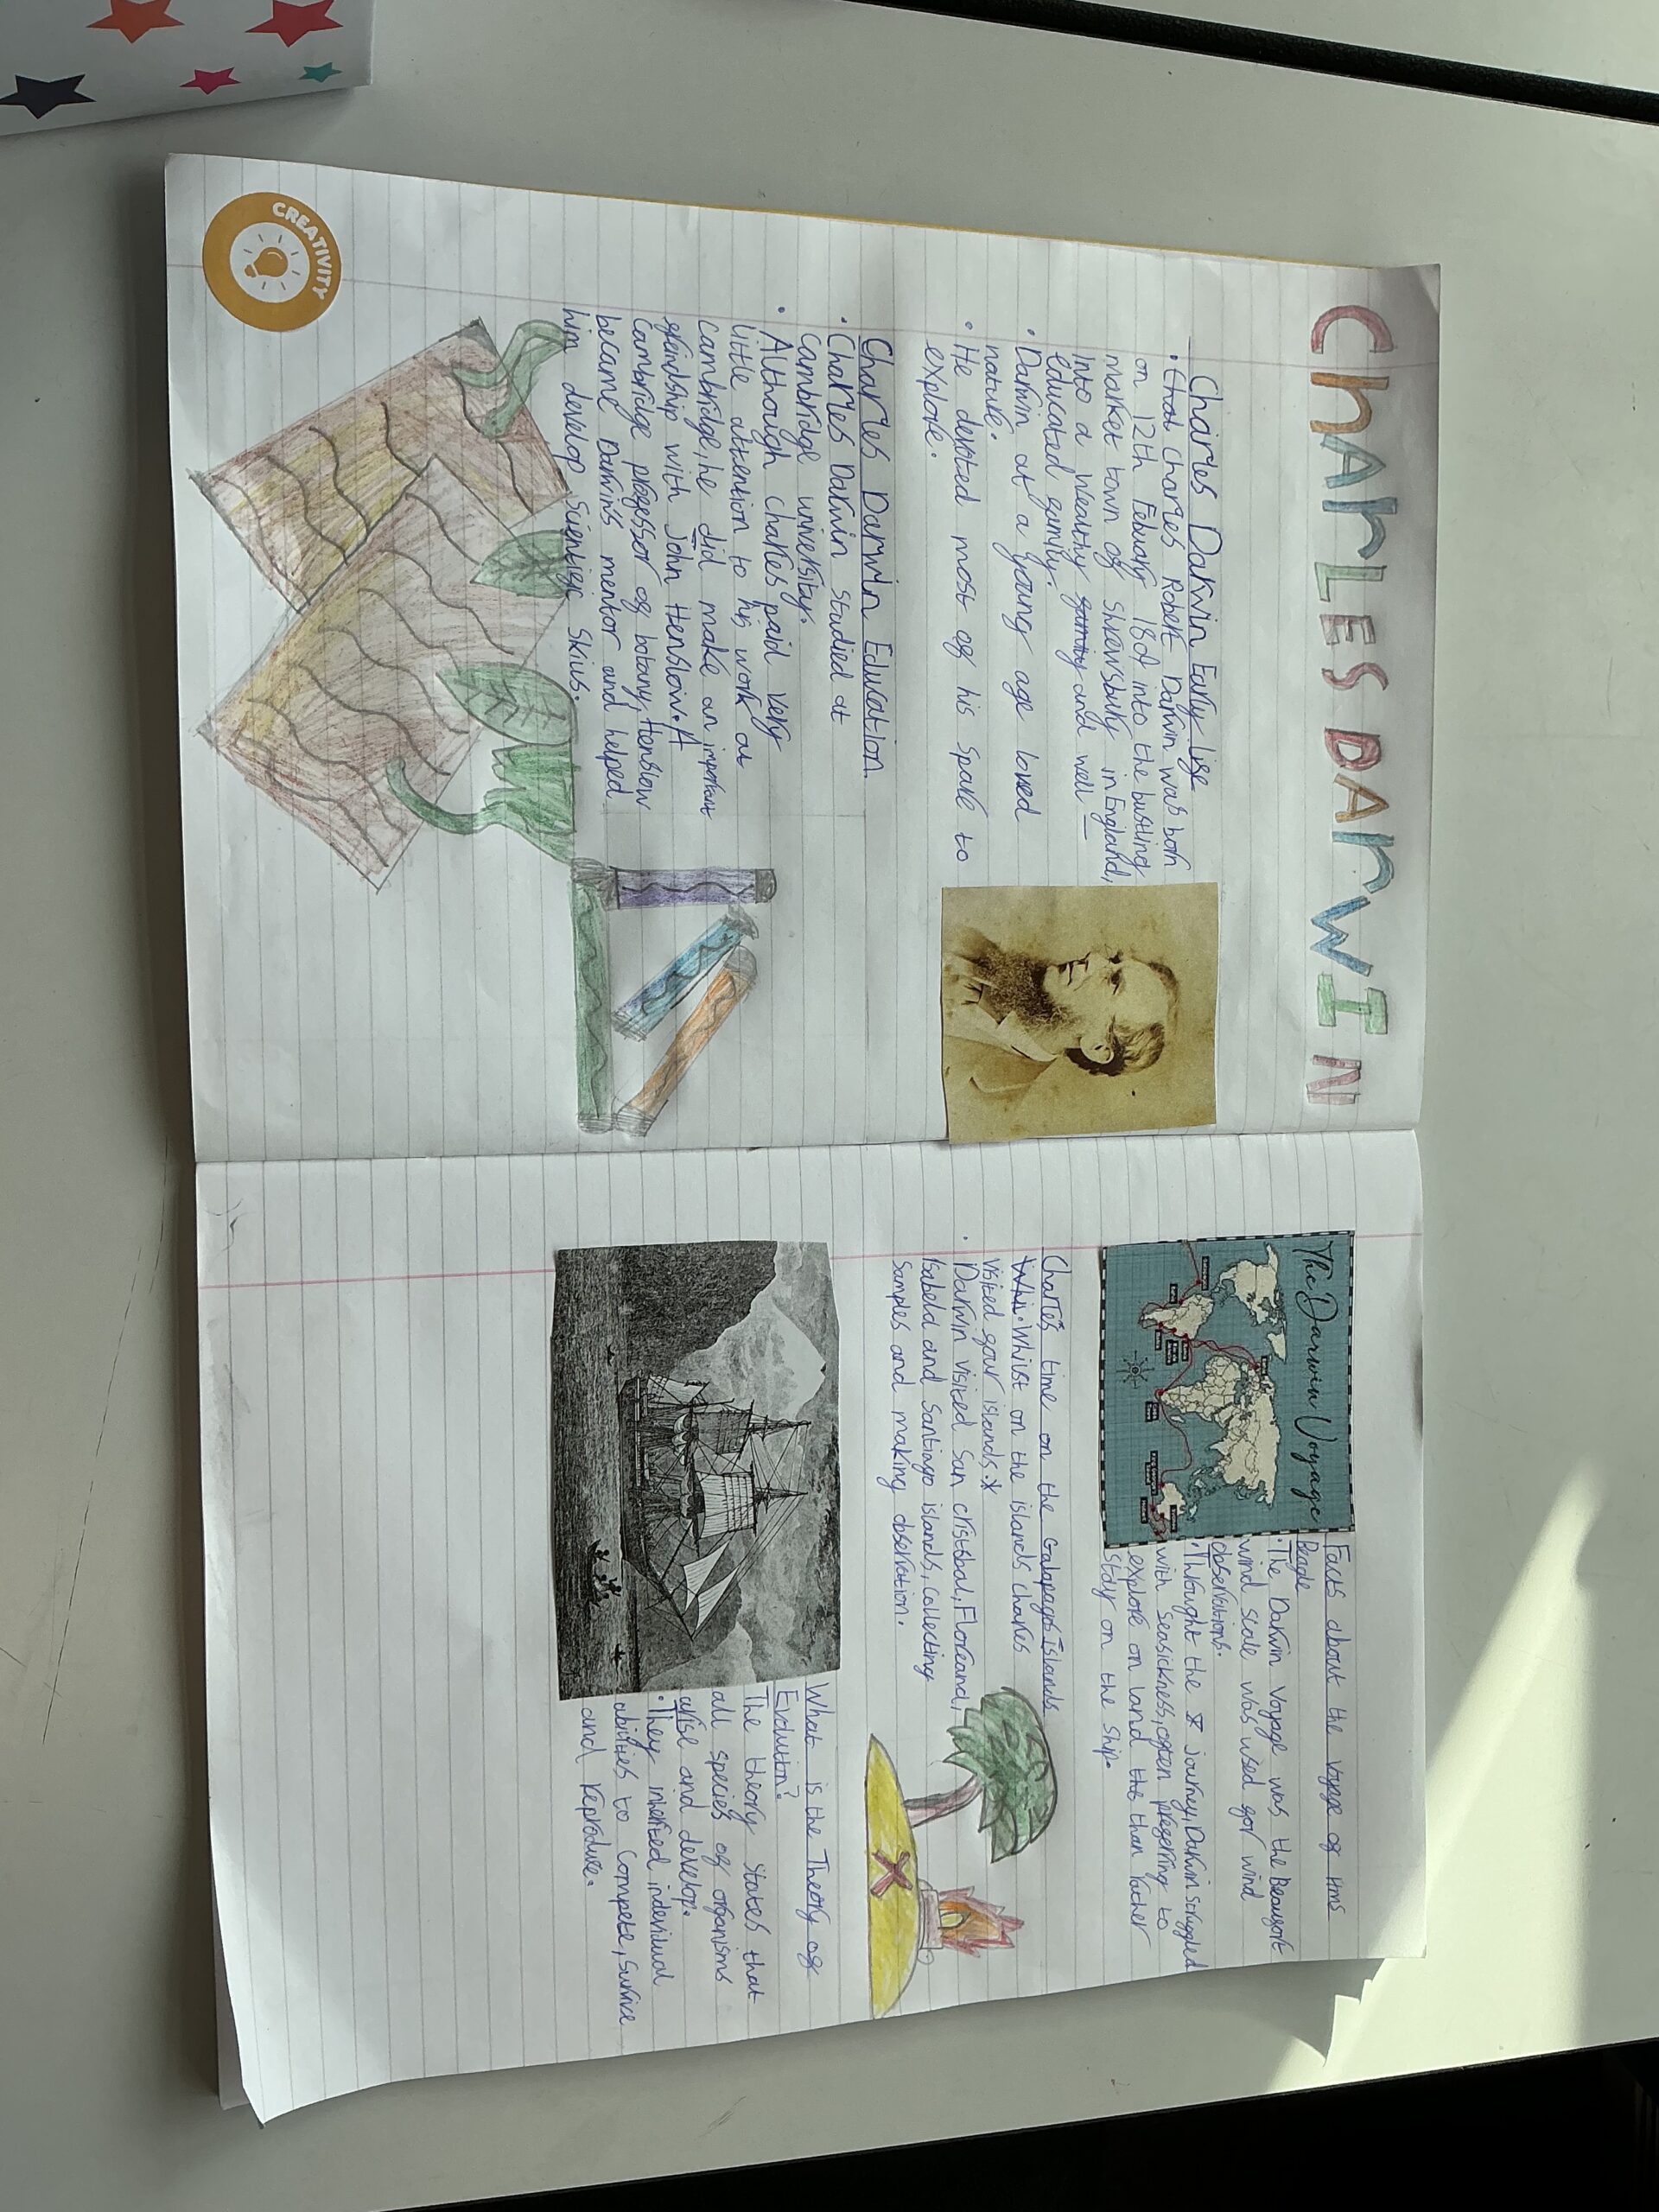 CREATIVITY
CHARLES DARWIN
Charles Darwin Early Life
• Char Charles Robert Darwin was born
on 12th Febuary 1809 into the bustling
market town of Shrewsbury in England,
Into a wealthy family and well
educated family.
• Darwin at a young age loved
nature.
• He devoted most of his spare to
explore.
Charles Darwin Education
• Charles Darwin studied at
Cambridge university.
• Although charles paid very
little attention to his work at
Cambridge, he did make an important
friendship with John Henslow. A
Cambridge professor of botany, Henslow
became Darwins mentor and helped
him develop scientific skills.
The Darwin Voyage
Facts about the voyage of HMS
Beagle
• The Darwin voyage was the Beaufort
wind scale was used for wind
observations.
• Throught the journey, Darwin struggled
with seasickness, often prefering to
explore on land that than rather
stay on the ship.
Charles time on the Galapagos Islands
Whi • Whilst on the islands charles
visited four islands.*
• Darwin visited San cristobal, Floreand,
Isabela and Santiago islands, collecting
samples and making observation.
What is the Theory of
Evolution?
The theory states that
all species of organisms
arise and develop.
• They inherited indevidual
abilities to compete, survive
and reproduce.